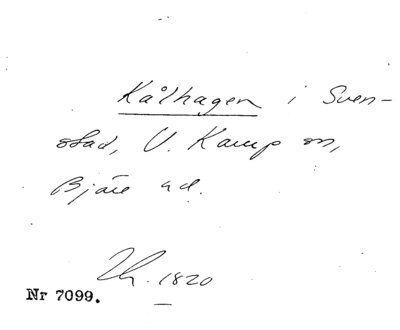 Kålhagen i Sven-
stad, V. Karup sn,
Bjäre hd.
Th. 1820
Nr 7099.